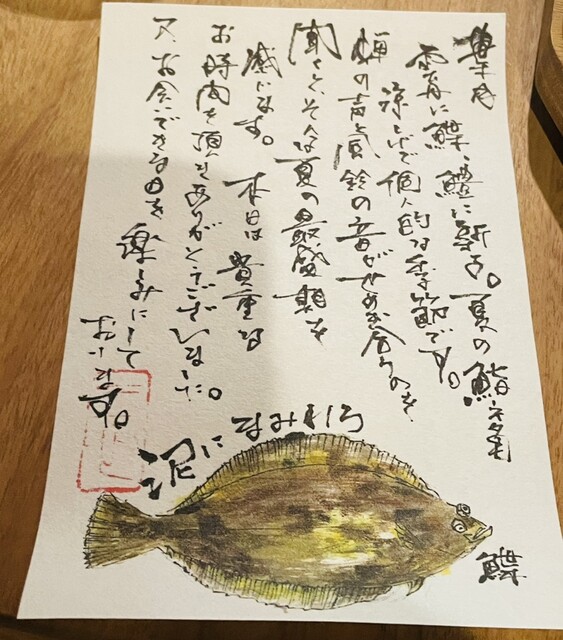 雲丹に鰈、鱧に新子。夏の鮨ネタも
涼しげで個人的な季節です。
蝉の声と風鈴の音がせめぎ合うのを
聞くと、そんな夏の最盛期を
感じます。本日は貴重な
お時間を頂きありがとうございました。
又、お会いできる日を楽しみにして
おります。
泥にまみれろ
鰈